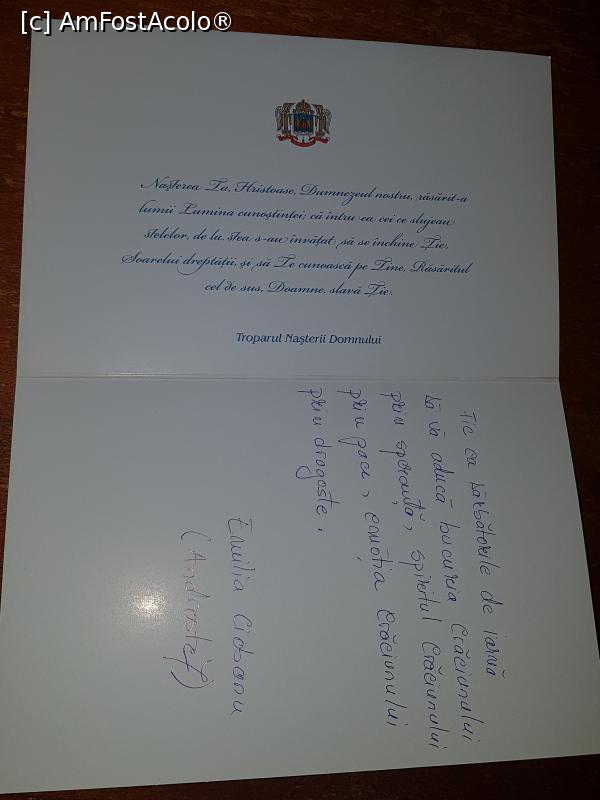 [c] AmFostAcolo®
Nașterea Ta, Hristoase, Dumnezeul nostru, răsărit-a
lumii Lumina cunoștinței; că întru ea cei ce slujeau
stelelor, de la stea s-au învățat să se închine Ție,
Soarelui dreptății, și să Te cunoască pe Tine, Răsăritul
cel de sus, Doamne, slavă Ție.
Troparul Nașterii Domnului
Fie ca sărbătorile de iarnă
să vă aducă bucuria Crăciunului
prin speranță, spiritul Crăciunului
prin pace, emoția Crăciunului
prin dragoste.
Emilia Ciobanu
(Androstef)